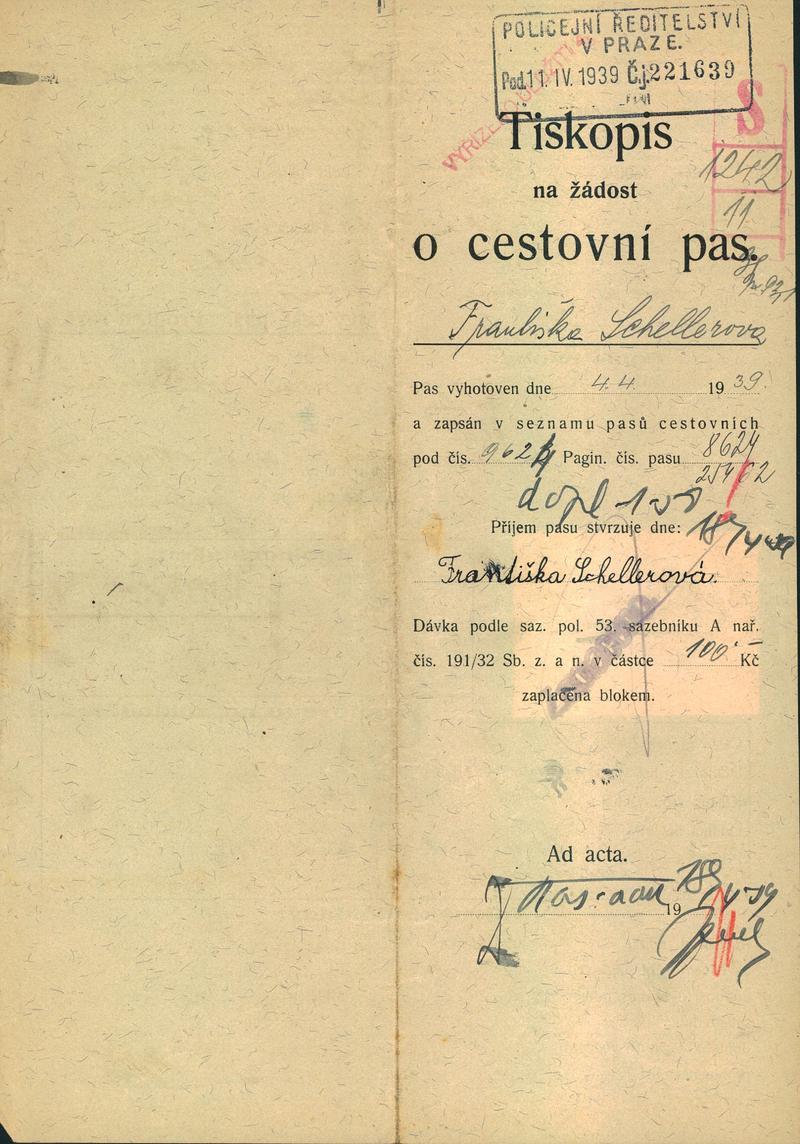 POLICEJNÍ ŘEDITELSTVÍ
V PRAZE.
Pod. 11. IV. 1939 Č.j. 221639
S
Tiskopis
1242
na žádost
11
o cestovní pas.
Františka Schellerova
Pas vyhotoven dne 4.4. 1939.
a zapsán v seznamu pasů cestovních
pod čís. 9624 Pagin. čís. pasu 8624
25462
Příjem pasu stvrzuje dne: 18/4 39
Františka Schellerová.
Dávka podle saz. pol. 53. sazebníku A nař.
čís. 191/32 Sb. z. a n. v částce 100'- Kč
zaplačena blokem.
Ad acta.
19